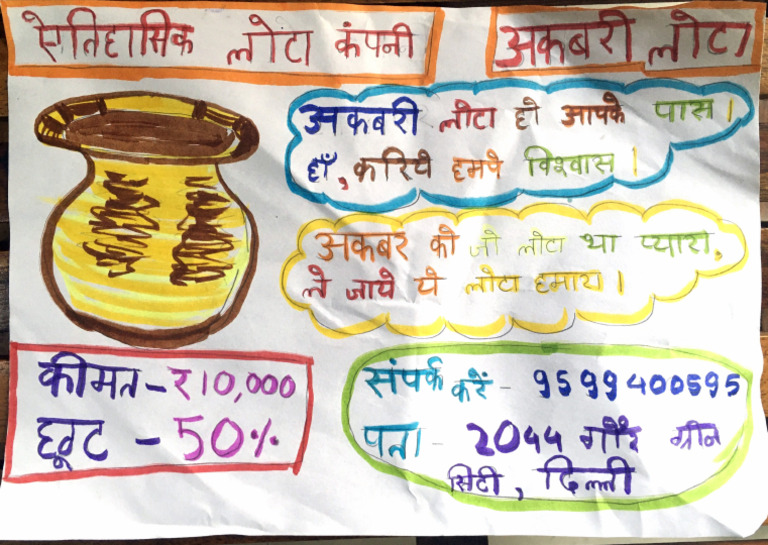 ऐतिहासिक लोटा कंपनी
अकबरी लोटा
अकबरी लोटा हो आपके पास।
हाँ, करिये हमपे विश्वास।
अकबर को जो लोटा था प्यारा,
ले जाये ये लोटा हमारा।
कीमत - ₹10,000
छूट - 50%
संपर्क करें - 9599400595
पता - 2044 गौर ग्रीन
सिटी, दिल्ली